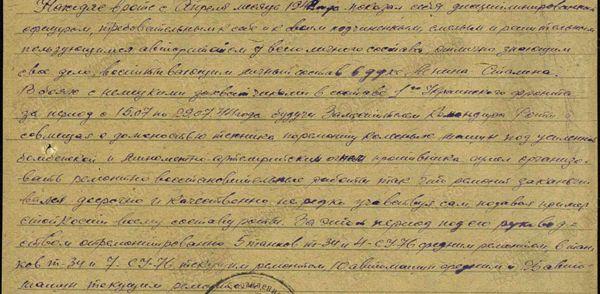 Находясь в роте с Апреля месяца 1944 года показал себя дисциплинированным
офицером, требовательным к себе и к своим подчиненным, смелым и решительным
пользующимся авторитетом у всего личного состава отлично знающим
свое дело, воспитывающим личный состав в духе Ленина Сталина.
В боях с немецкими захватчиками в составе 1го Украинского фронта
за период с 15.07 по 29.07.44 года будучи Заместителем Командира Роты
совмещая с должностью техника по ремонту колесных машин под усиленной
бомбежкой и минометно-артиллерийским огнем противника сумел организо-
вать ремонтно восстановительные работы так что ремонт заканчи-
вался досрочно и качественно не редко участвуя сам подавая пример
стойкости всему составу роты. За этот период под его руковод-
ством отремонтировано 5 танков т-34 и 4-СУ-76 средним ремонтом, тан-
ков т-34 и 7-СУ-76 текущим ремонтом 10 автомашин средним и автома-
шин текущим ремонтом